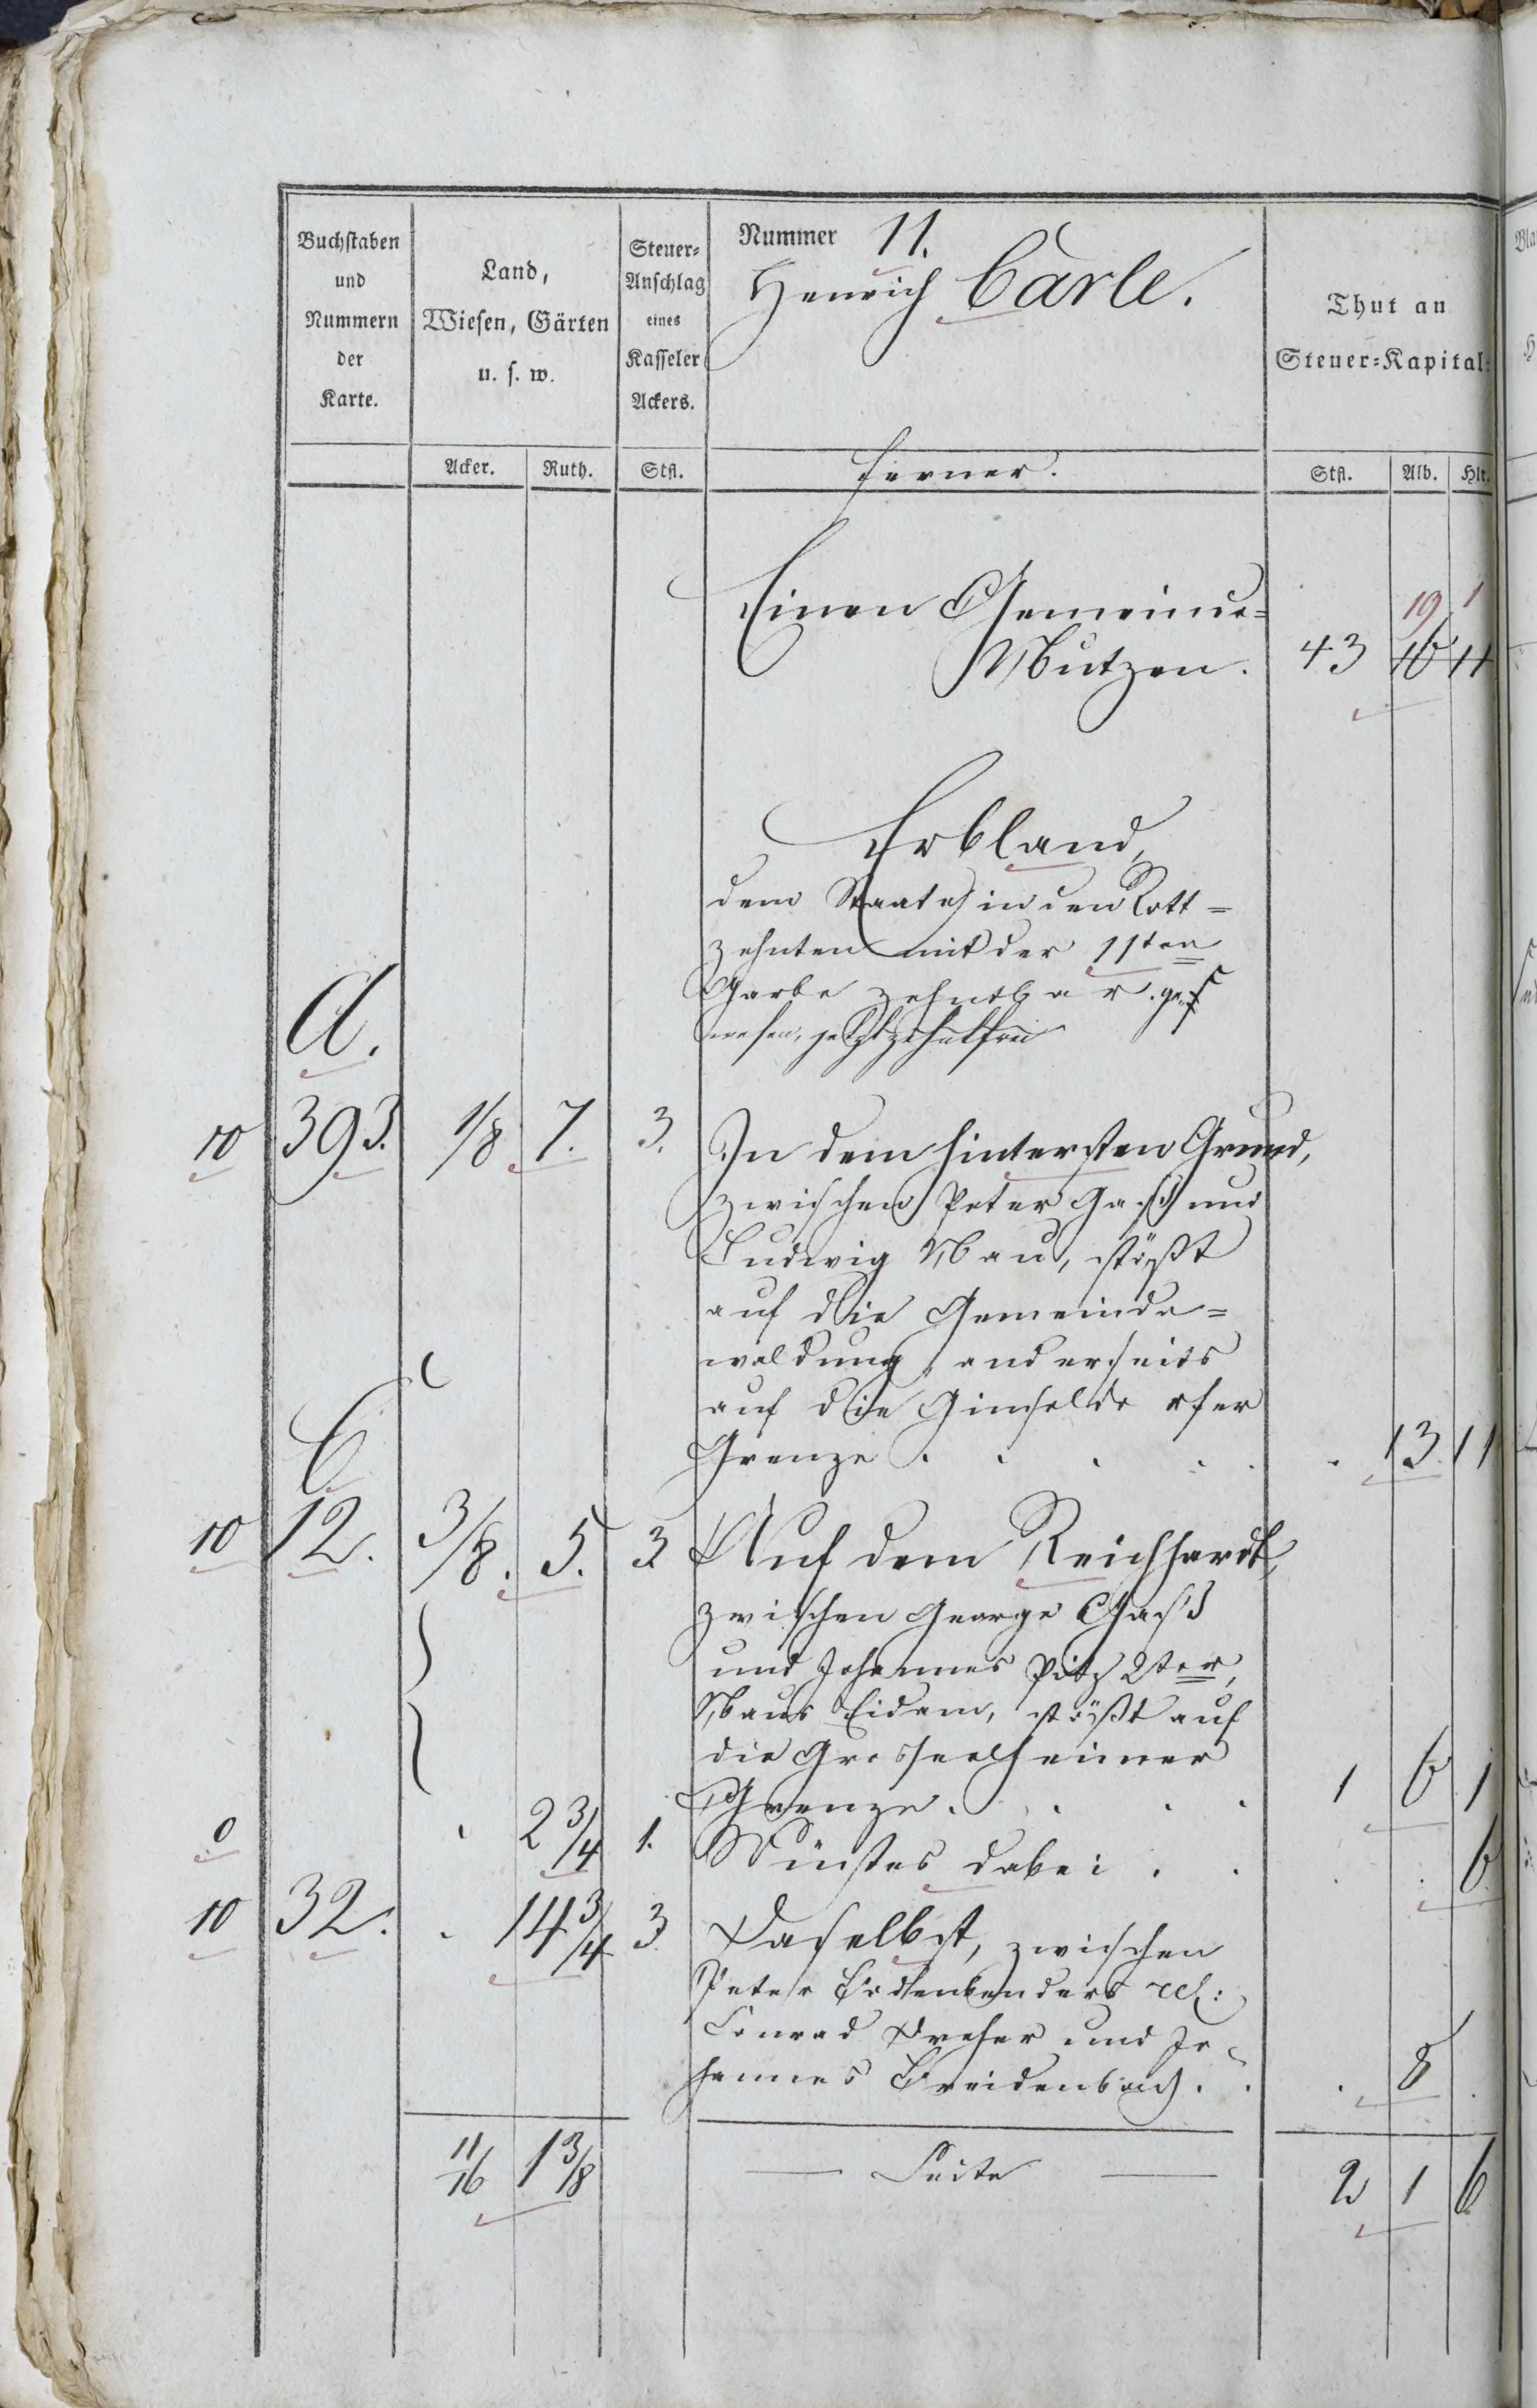 Buchstaben und Nummern der Karte.
Land, Wiesen, Gärten u. s. w.
Steuer-Anschlag eines Kasseler Ackers.
Nummer 11.
Henrich Carle.
Thut an Steuer-Kapital:
Acker. Ruth. Stfl. ferner. Stfl. Alb. Hlr.
19 1
Einen Gemeinds-
Nutzen. 43 16 11
Erbland,
dem Staate in den Rott-
zehnten mit der 11ten
Garbe zehndbar. ge-
A. wesen, jetzt zehntfrei
10 393. 1/8 7. 3. In dem hintersten Grund,
zwischen Peter Gaß und
Ludwig Nau, stößt
auf die Gemeinde-
waldung, anderseits
auf die Ginseldorfer
C. Grenze . . . . . 13 11
10 12. 3/8. 5. 3. Auf dem Reichhardt,
zwischen George Gaß
und Johannes Pitz 2ter,
Naus Eidam, stößt auf
die Grosseelheimer
Grenze . . . . 1 6 1
0 . 2 3/4 1. Wüstes dabei . . . . 6
10 32. . 14 3/4 3. Daselbst, zwischen
Peter Bodenbenders rel:
Conrad Dreher und Jo-
hannes Breidenbach . . . 8 .
11/16 1 3/8 — Seite — 2 1 6